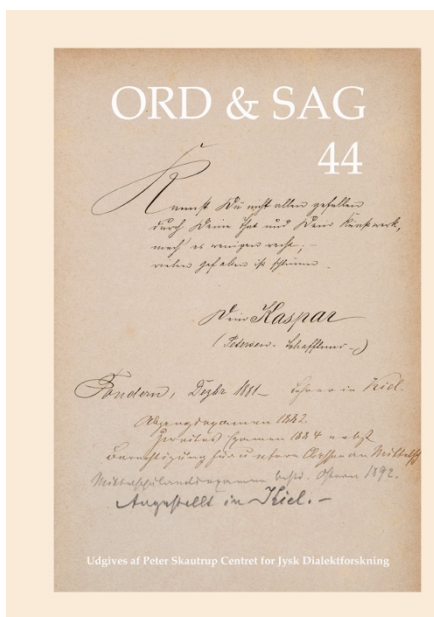 ORD & SAG
44
Kannst Du nicht allen gefallen
durch Deine That und Dein Kunstwerk,
mach es wenigen recht; –
vielen gefallen ist schlimm.
Dein Kaspar
(Petersen -
Tondern, Dezbr 1881 – Lehrer in Kiel.
Abgangsexamen 1882.
Zweites Examen 1884 nebst
Berechtigung für untere Classen an
best. Ostern 1892.
Angestellt in Kiel. –
Udgives af Peter Skautrup Centret for Jysk Dialektforskning